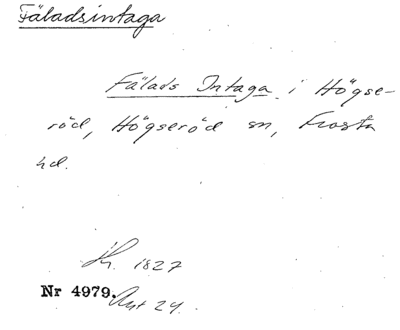 Fäladsintaga
Fälads Intaga i Högse-
röd, Högseröd sn, Frosta
hd.
1827
Nr 4979. Akt 24.